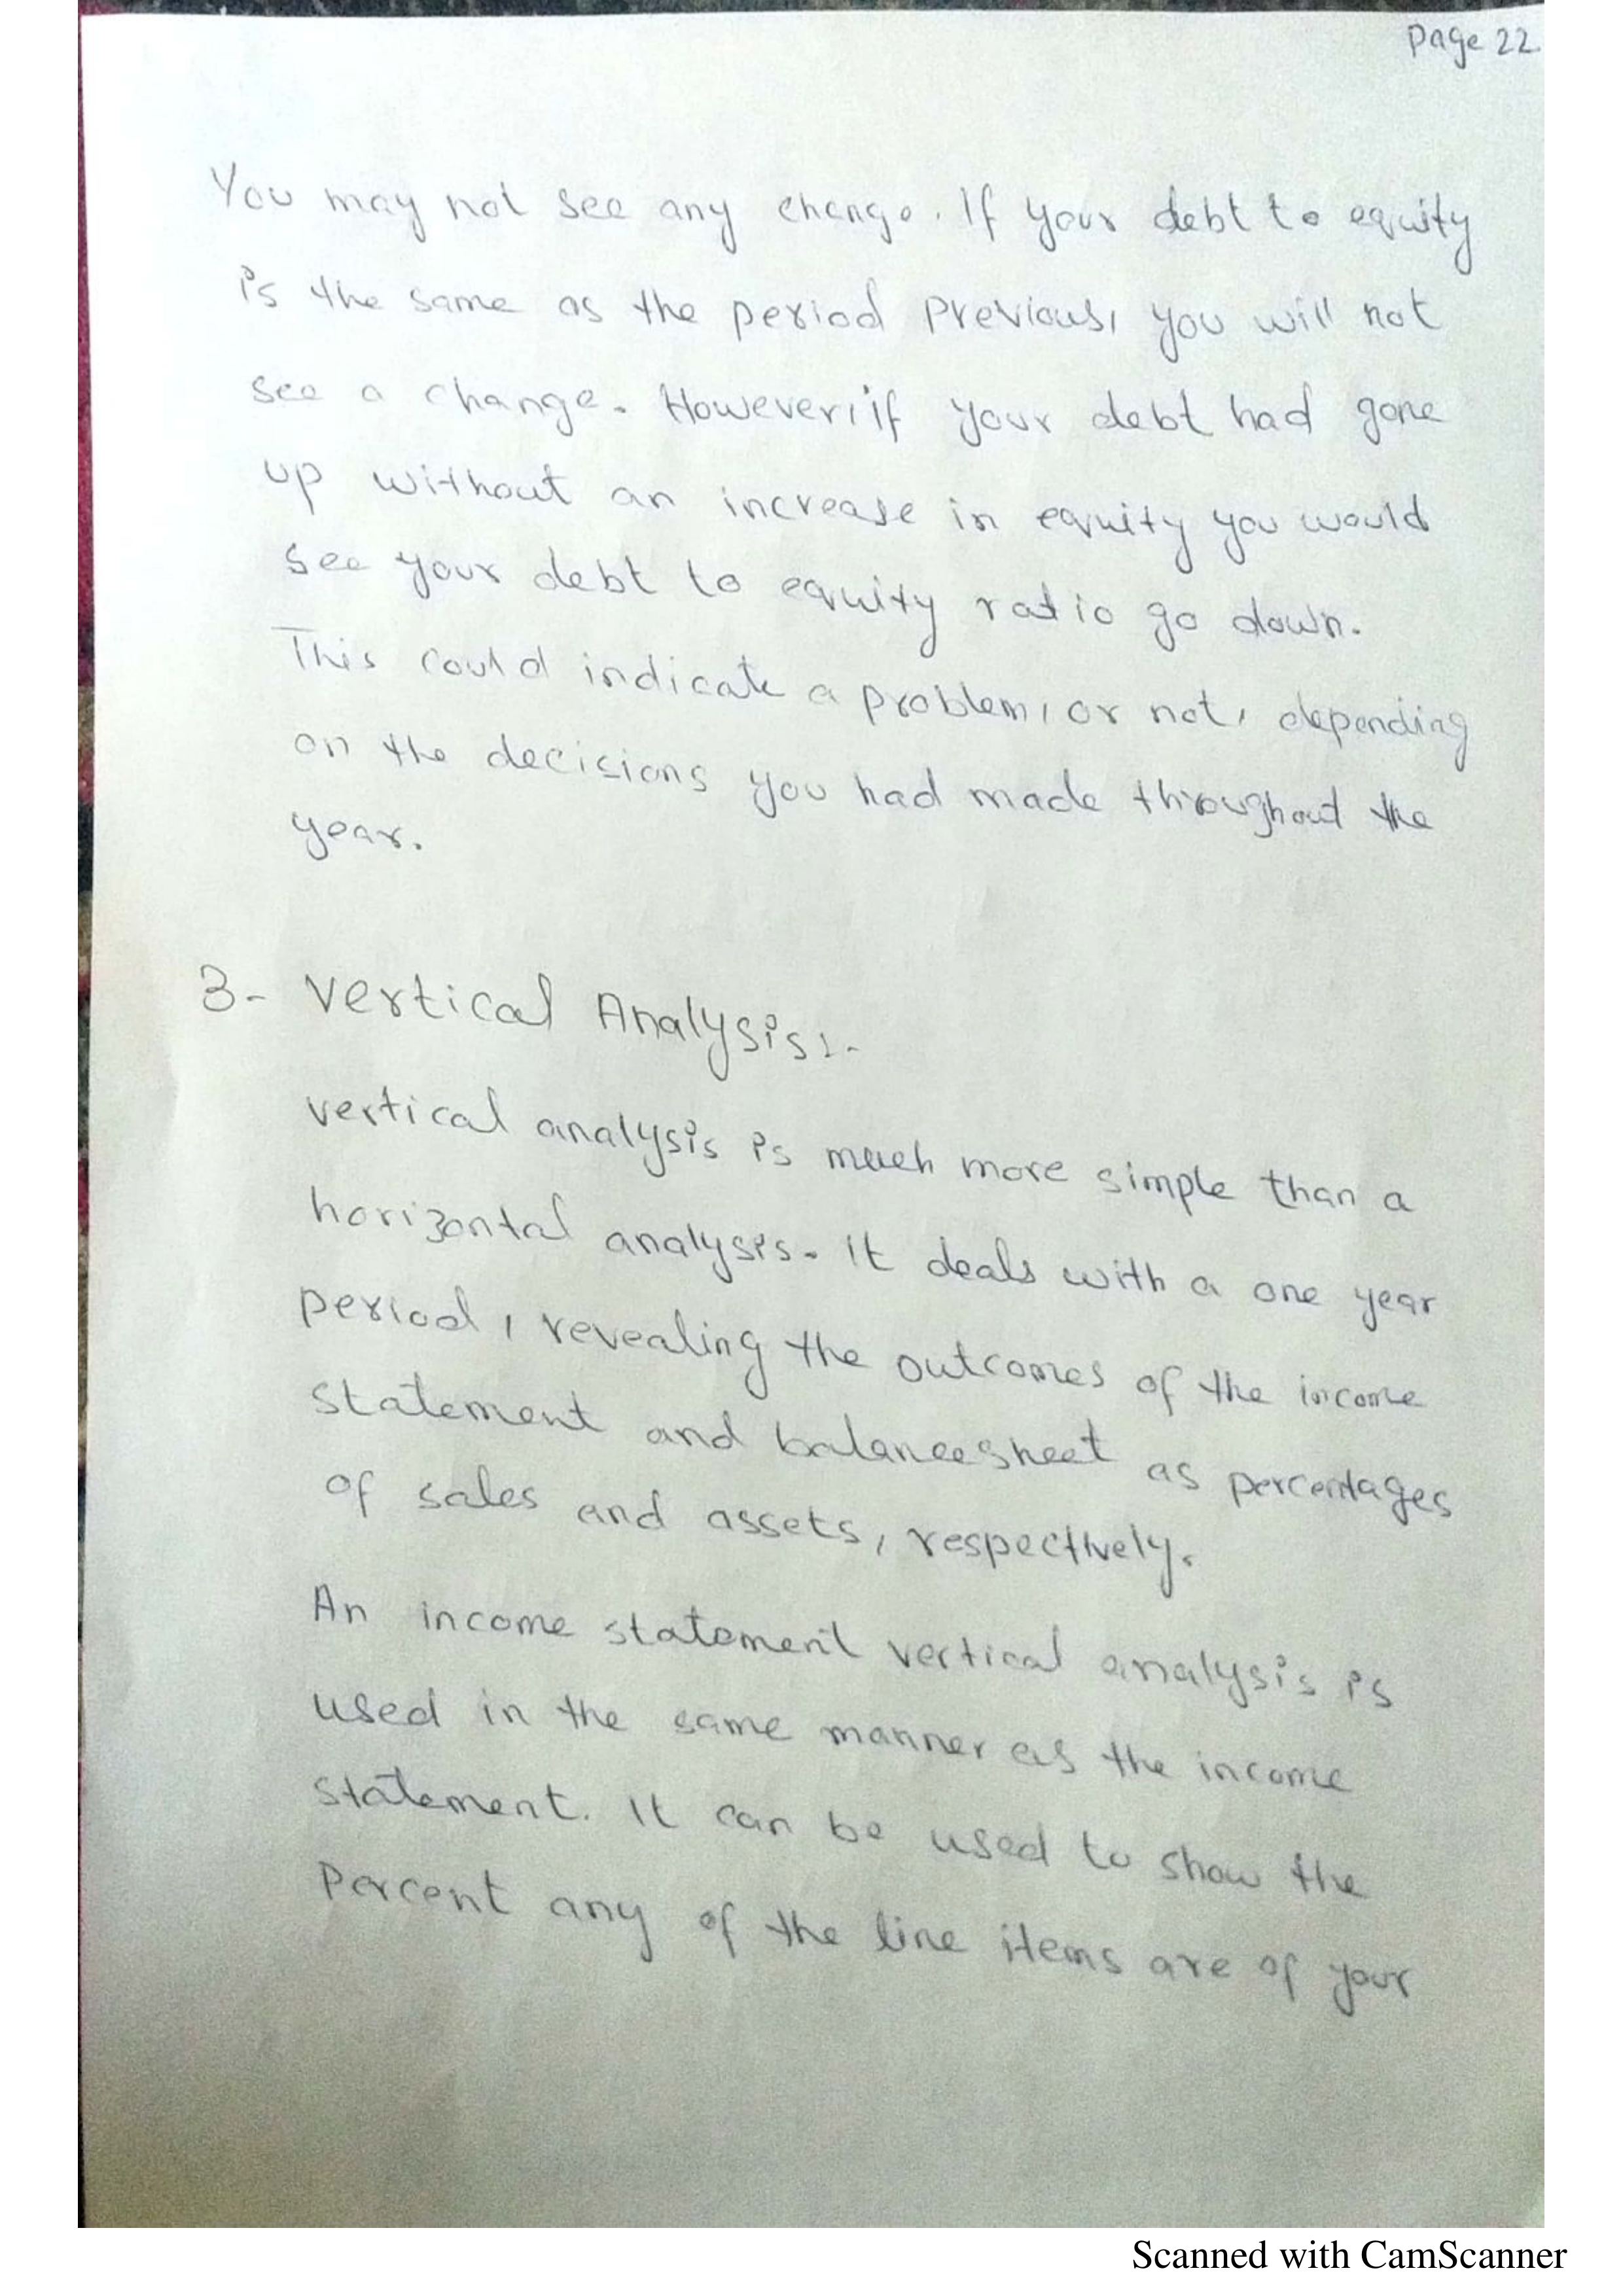 Page 22
You may not see any change. If your debt to equity
is the same as the period previous, you will not
see a change. However, if your debt had gone
up without an increase in equity you would
see your debt to equity ratio go down.
This could indicate a problem, or not, depending
on the decisions you had made throughout the
year.
3- Vertical Analysis:-
vertical analysis is much more simple than a
horizontal analysis. It deals with a one year
period, revealing the outcomes of the income
statement and balancesheet as percentages
of sales and assets, respectively.
An income statement vertical analysis is
used in the same manner as the income
statement. It can be used to show the
percent any of the line items are of your
Scanned with CamScanner